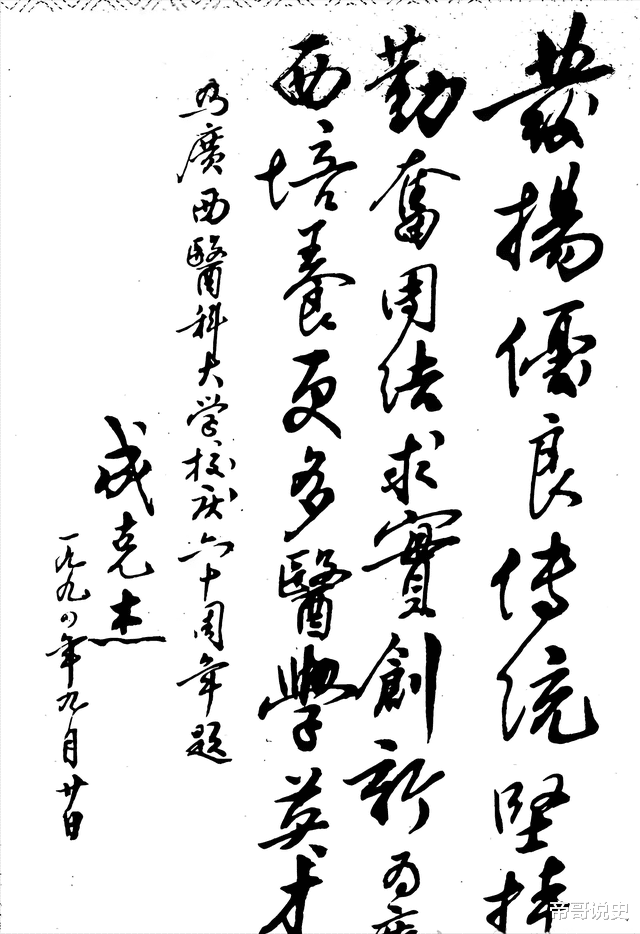 發揚優良传统堅持
勤奮团结求實創新为廣
西培養更多醫學英才
为廣西醫科大学校庆六十周年题
成克杰
一九九四年九月廿日
帝哥说史